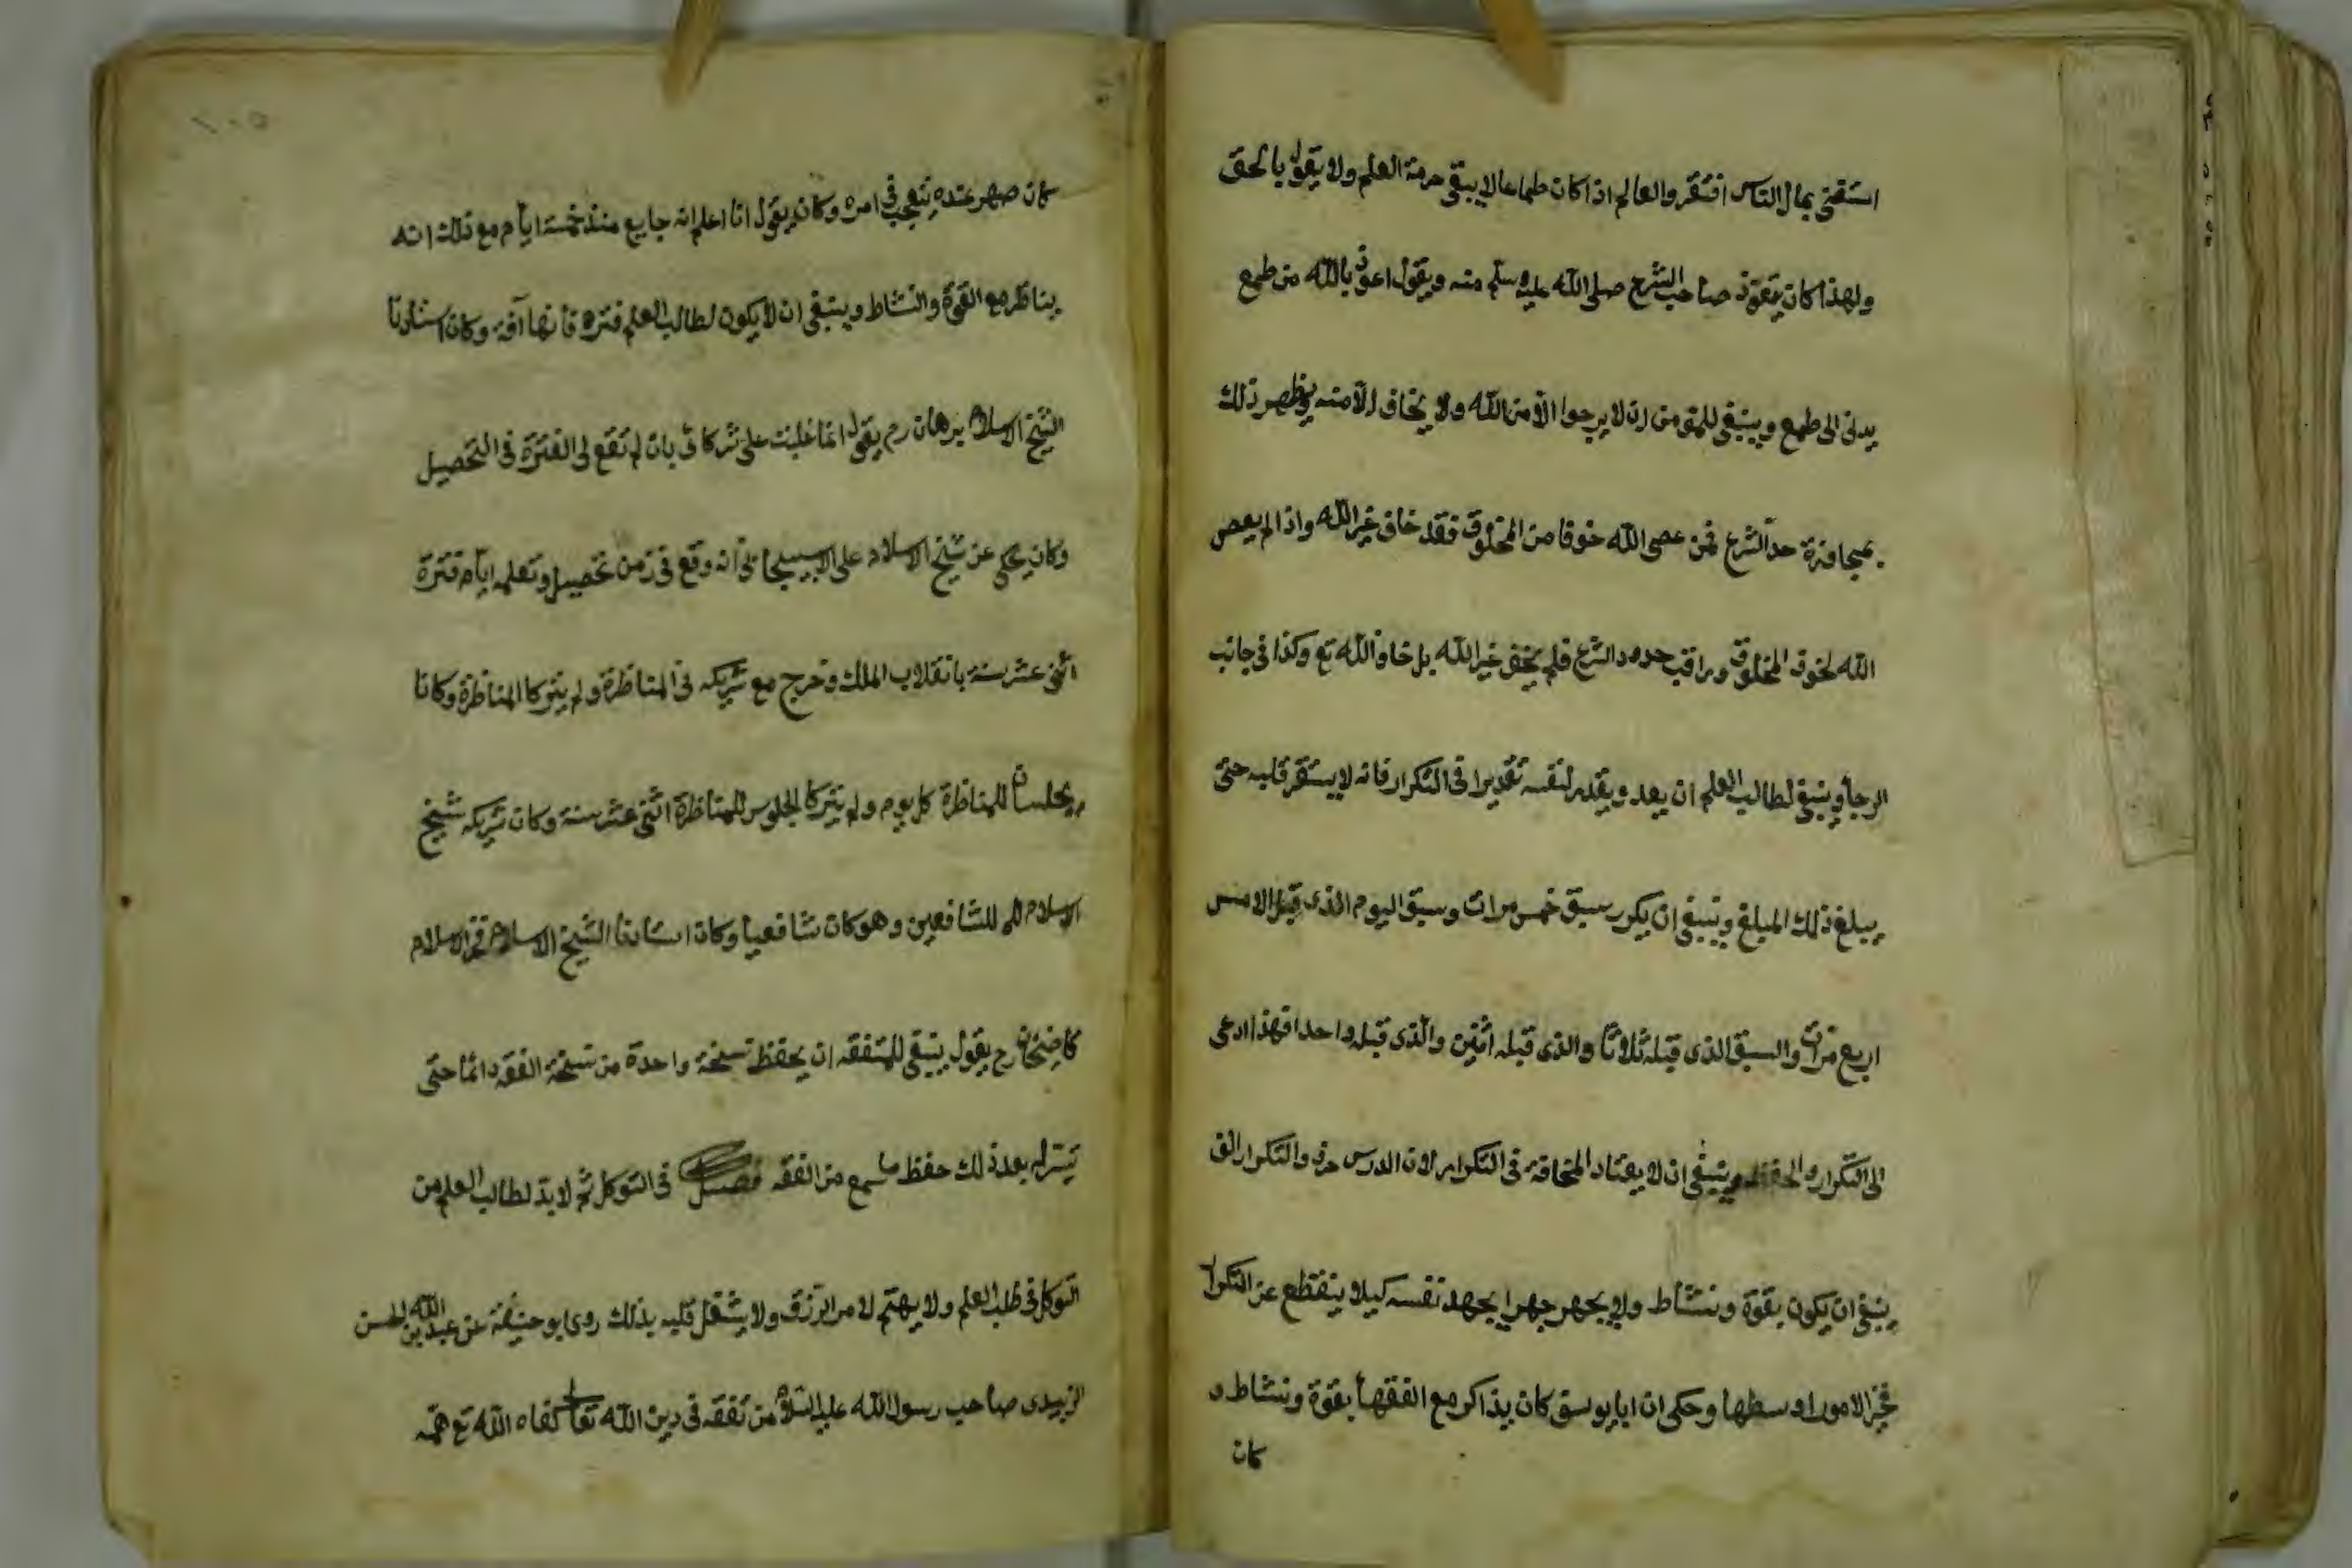 استغنى بمال الناس افتقر والعالم اذا كان طماعا لا يبقى حرمة العلم ولا يقول بالحق
ولهذا كان يتعوذ صاحب الشرع صلى الله عليه وسلم منه ويقول اعوذ بالله من طمع
يدنى الى طمع وينبغى للمؤمن ان لا يرجوا الا من الله ولا يخاف الا منه ويظهر ذلك
بمجاوزة حد الشرع فمن عصى الله خوفا من المخلوق فقد خاف غير الله واذا لم يعص
الله لخوف المخلوق وراقب حدود الشرع فلم يخف غير الله بل خاف الله تع وكذا فى جانب
الرجأ وينبغى لطالب العلم ان يعد ويقدر لنفسه تقديرا فى التكرار فانه لا يستقر قلبه حتى
يبلغ ذلك المبلغ وينبغى ان يكرر سبق خمس مرات وسبق اليوم الذى قبل الامس
اربع مرات والسبق الذى قبله ثلاثا والذى قبله اثنين والذى قبله واحدا فهذا ادعى
الى التكرار والحفظ وينبغى ان لا يعتاد المخافة فى التكرار لان الدرس حرف والتكرار الف
ينبغى ان يكون بقوة ونشاط ولا يجهر جهرا يجهد نفسه كيلا ينقطع عن التكرار
فخير الامور اوسطها وحكى ان ابا يوسف كان يذاكر مع الفقهأ بقوة ونشاط و
كان
١٠٥
كان صهر عنده يتعجب فى امره وكان يقول انا اعلم انه جايع منذ خمسة ايام مع ذلك انه
يناظر مع القوة والنشاط وينبغى ان لا يكون لطالب العلم فترة فانها آفة وكان استاذنا
الشيخ الاسلام برهان رح يقول انما غلبت على شركائى بان لم تقع لى الفترة فى التحصيل
وكان يحكى عن شيخ الاسلام على الاسبيجابى انه وقع فى زمن تحصيل وتعلمه ايام فترة
اثنى عشر سنة بانقلاب الملك وخرج مع شريكه فى المناظرة ولم يتركا المناظرة وكانا
يجلسان للمناظرة كل يوم ولم يتركا الجلوس للمناظرة اثنى عشر سنة وكان شريكه شيخ
الاسلام للشافعين وهو كان شافعيا وكان استاذنا الشيخ الاسلام فخر الاسلام
قاضيخان رح يقول ينبغى للمتفقه ان يحفظ نسخة واحدة من نسخة الفقه دائما حتى
تيسر له بعد ذلك حفظ ما سمع من الفقه فصل فى التوكل ثم لا بد لطالب العلم من
التوكل فى طلب العلم ولا يهتم لامر الرزق ولا يشغل قلبه بذلك روى ابو حنيفة عن عبد الله بن الحسن
الزبيدى صاحب رسول الله عليه السلام من تفقه فى دين الله تعالى كفاه الله تع همه